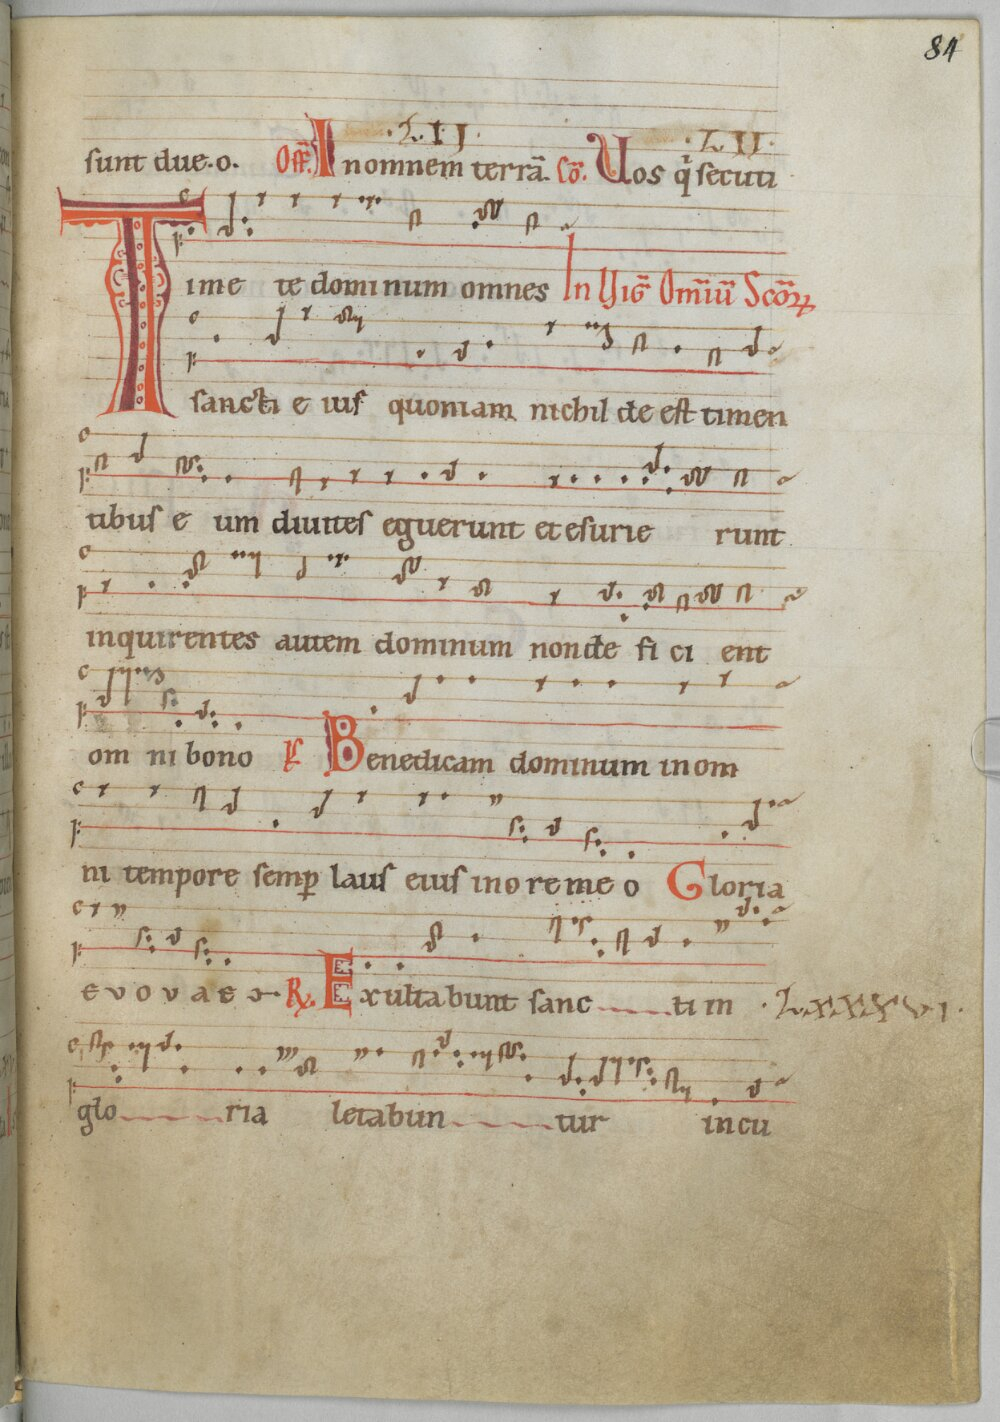 84
·LII· ·LII·
sunt due.o. Off. In omnem terrā. Cō. Uos q̄ secuti
Timete dominum omnes In Uigł Omiū Scōꝝ
sancti eius quoniam nichil deest timen
tibus eum diuites eguerunt et esurierunt
inquirentes autem dominum non deficient
omni bono ℟ Benedicam dominum in om
ni tempore semp laus eius in ore meo Gloria
evovae ℟. Exultabunt sancti in ·LXXXVI·
gloria letabuntur in cu